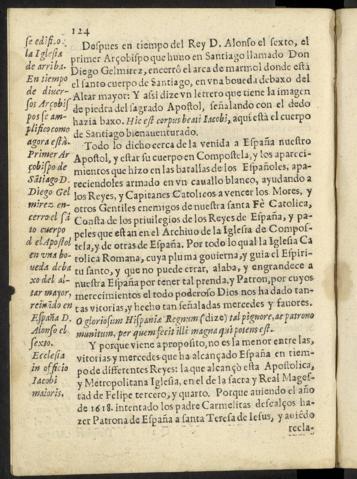 124
se edificò
la Iglesia
de arriba.
En tiempo
de diuer-
sos Arçobis
pos se am-
plificò como
agora està.
Primer Ar
çobispo de
Sãtiago D.
Diego Gel
mirez en-
cerro el sã
to cuerpo
d el Apostol
en vna bo-
ueda deba
xo del al-
tar mayor,
reinãdo en
España D.
Alonso el
sexto.
Ecclesia
in officio
Iacobi
maioris.
Despues en tiempo del Rey D. Alonso el sexto, el
primer Arçobispo que huuo en Santiago llamado Don
Diego Gelmirez, encerrô el arca de marmol donde està
el santo cuerpo de Santiago, en vna boueda debaxo del
Altar mayor: Y assi dize vn letrero que tiene la imagen
de piedra del sagrado Apostol, señalando con el dedo
hazia baxo. Hic est corpus beati Iacobi, aqui està el cuerpo
de Santiago bienauenturado.
Todo lo dicho cerca de la venida a España nuestro
Apostol, y estar su cuerpo en Compostela, y los apareci-
mientos que hizo en las batallas de los Españoles, apa-
reciendoles armado en vn cauallo blanco, ayudando a
los Reyes, y Capitanes Catolicos a vencer los Moros, y
otros Gentiles enemigos de nuestra santa Fè Catolica,
Consta de los priuilegios de los Reyes de España, y pa-
peles que estan en el Archiuo de la Iglesia de Compos-
tela, y de otras de España. Por todo lo qual la Iglesia Ca
tolica Romana, cuya pluma gouierna, y guia el Espiri-
tu santo, y que no puede errar, alaba, y engrandece a
nuestra España por tener tal prenda, y Patron, por cuyos
merecimientos el todo poderoso Dios nos ha dado tan-
tas vitorias, y hecho tan señaladas mercedes y fauores.
O gloriosum Hispaniæ Regnum (dize) tal pignore, ac patrono
munitum, per quem fecit illi magna qui potens est.
Y porque viene a proposito, no es la menor entre las
vitorias y mercedes que ha alcançado España en tiem-
po de differentes Reyes: la que alcançò esta Apostolica,
y Metropolitana Iglesia, en el de la sacra y Real Mages-
tad de Felipe tercero, y quarto. Porque auiendo el año
de 1618. intentado los padre Carmelitas descalços ha-
zer Patrona de España a santa Teresa de Iesus, y auiẽdo
recla-